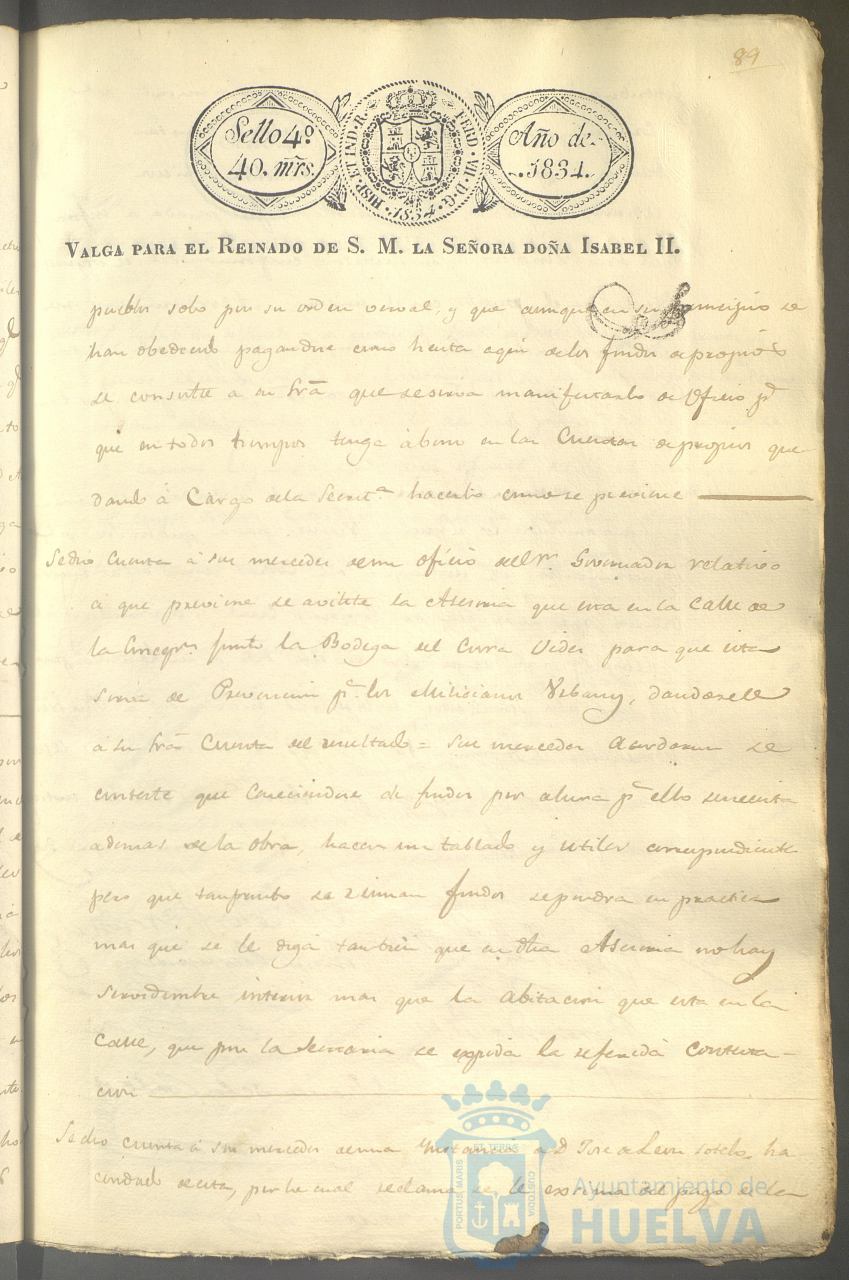 89
Sello 4º
40. mrs.
HISP. ET IND. R. FERD. VII. D. G. 1834
Año de
1834.
VALGA PARA EL REINADO DE S. M. LA SEÑORA DOÑA ISABEL II.
pueblos solo por su orden verval, y que aunque en su principio se
han obedecido pagandose como hasta aqui de los fondos de propios
se consulte a su Sria que se sirva manifestarlo de Oficio pª
que en todos tiempos tenga abono en las Cuentas de propios que
dando á Cargo de la Secretª hacerlo como se previene
Se dio Cuenta á sus mercedes de un oficio del Sr. Governador relativo
a que previene se avilite la Asesoria que esta en la Calle de
la junto la Bodega del Cura para que esta
sirva de Prevencion pª los Milicianos Urbanos, dandosele
á su Sria Cuenta del resultado = Sus mercedes Acordaron se
conteste que Careciendose de fondos por ahora pª ello se necesita
ademas de la obra, hacer un tablado y utiles correspondientes
pero que tan pronto se reunan fondos se pondra en practica
mas que se le diga tambien que en dha Asesoria no hay
servidumbre interior mas que la abitacion que esta en la
Calle, que por la Secretaria se expida la referida Contesta-
cion
Se dio cuenta á sus mercedes de una Ynstancia a D. Jose de Leon Sotelo, ha
cendado de esta, por la cual reclama se le exsima del pago de la
ET TERRAE
PORTUS MARIS
CUSTODIA
Ayuntamiento de
HUELVA